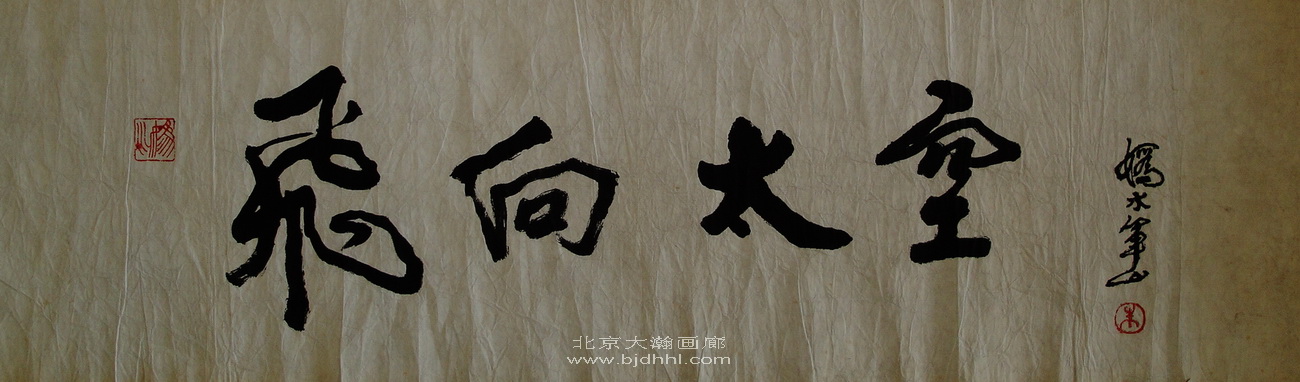 飛向太空
北京大瀚画廊
www.bjdhhl.com